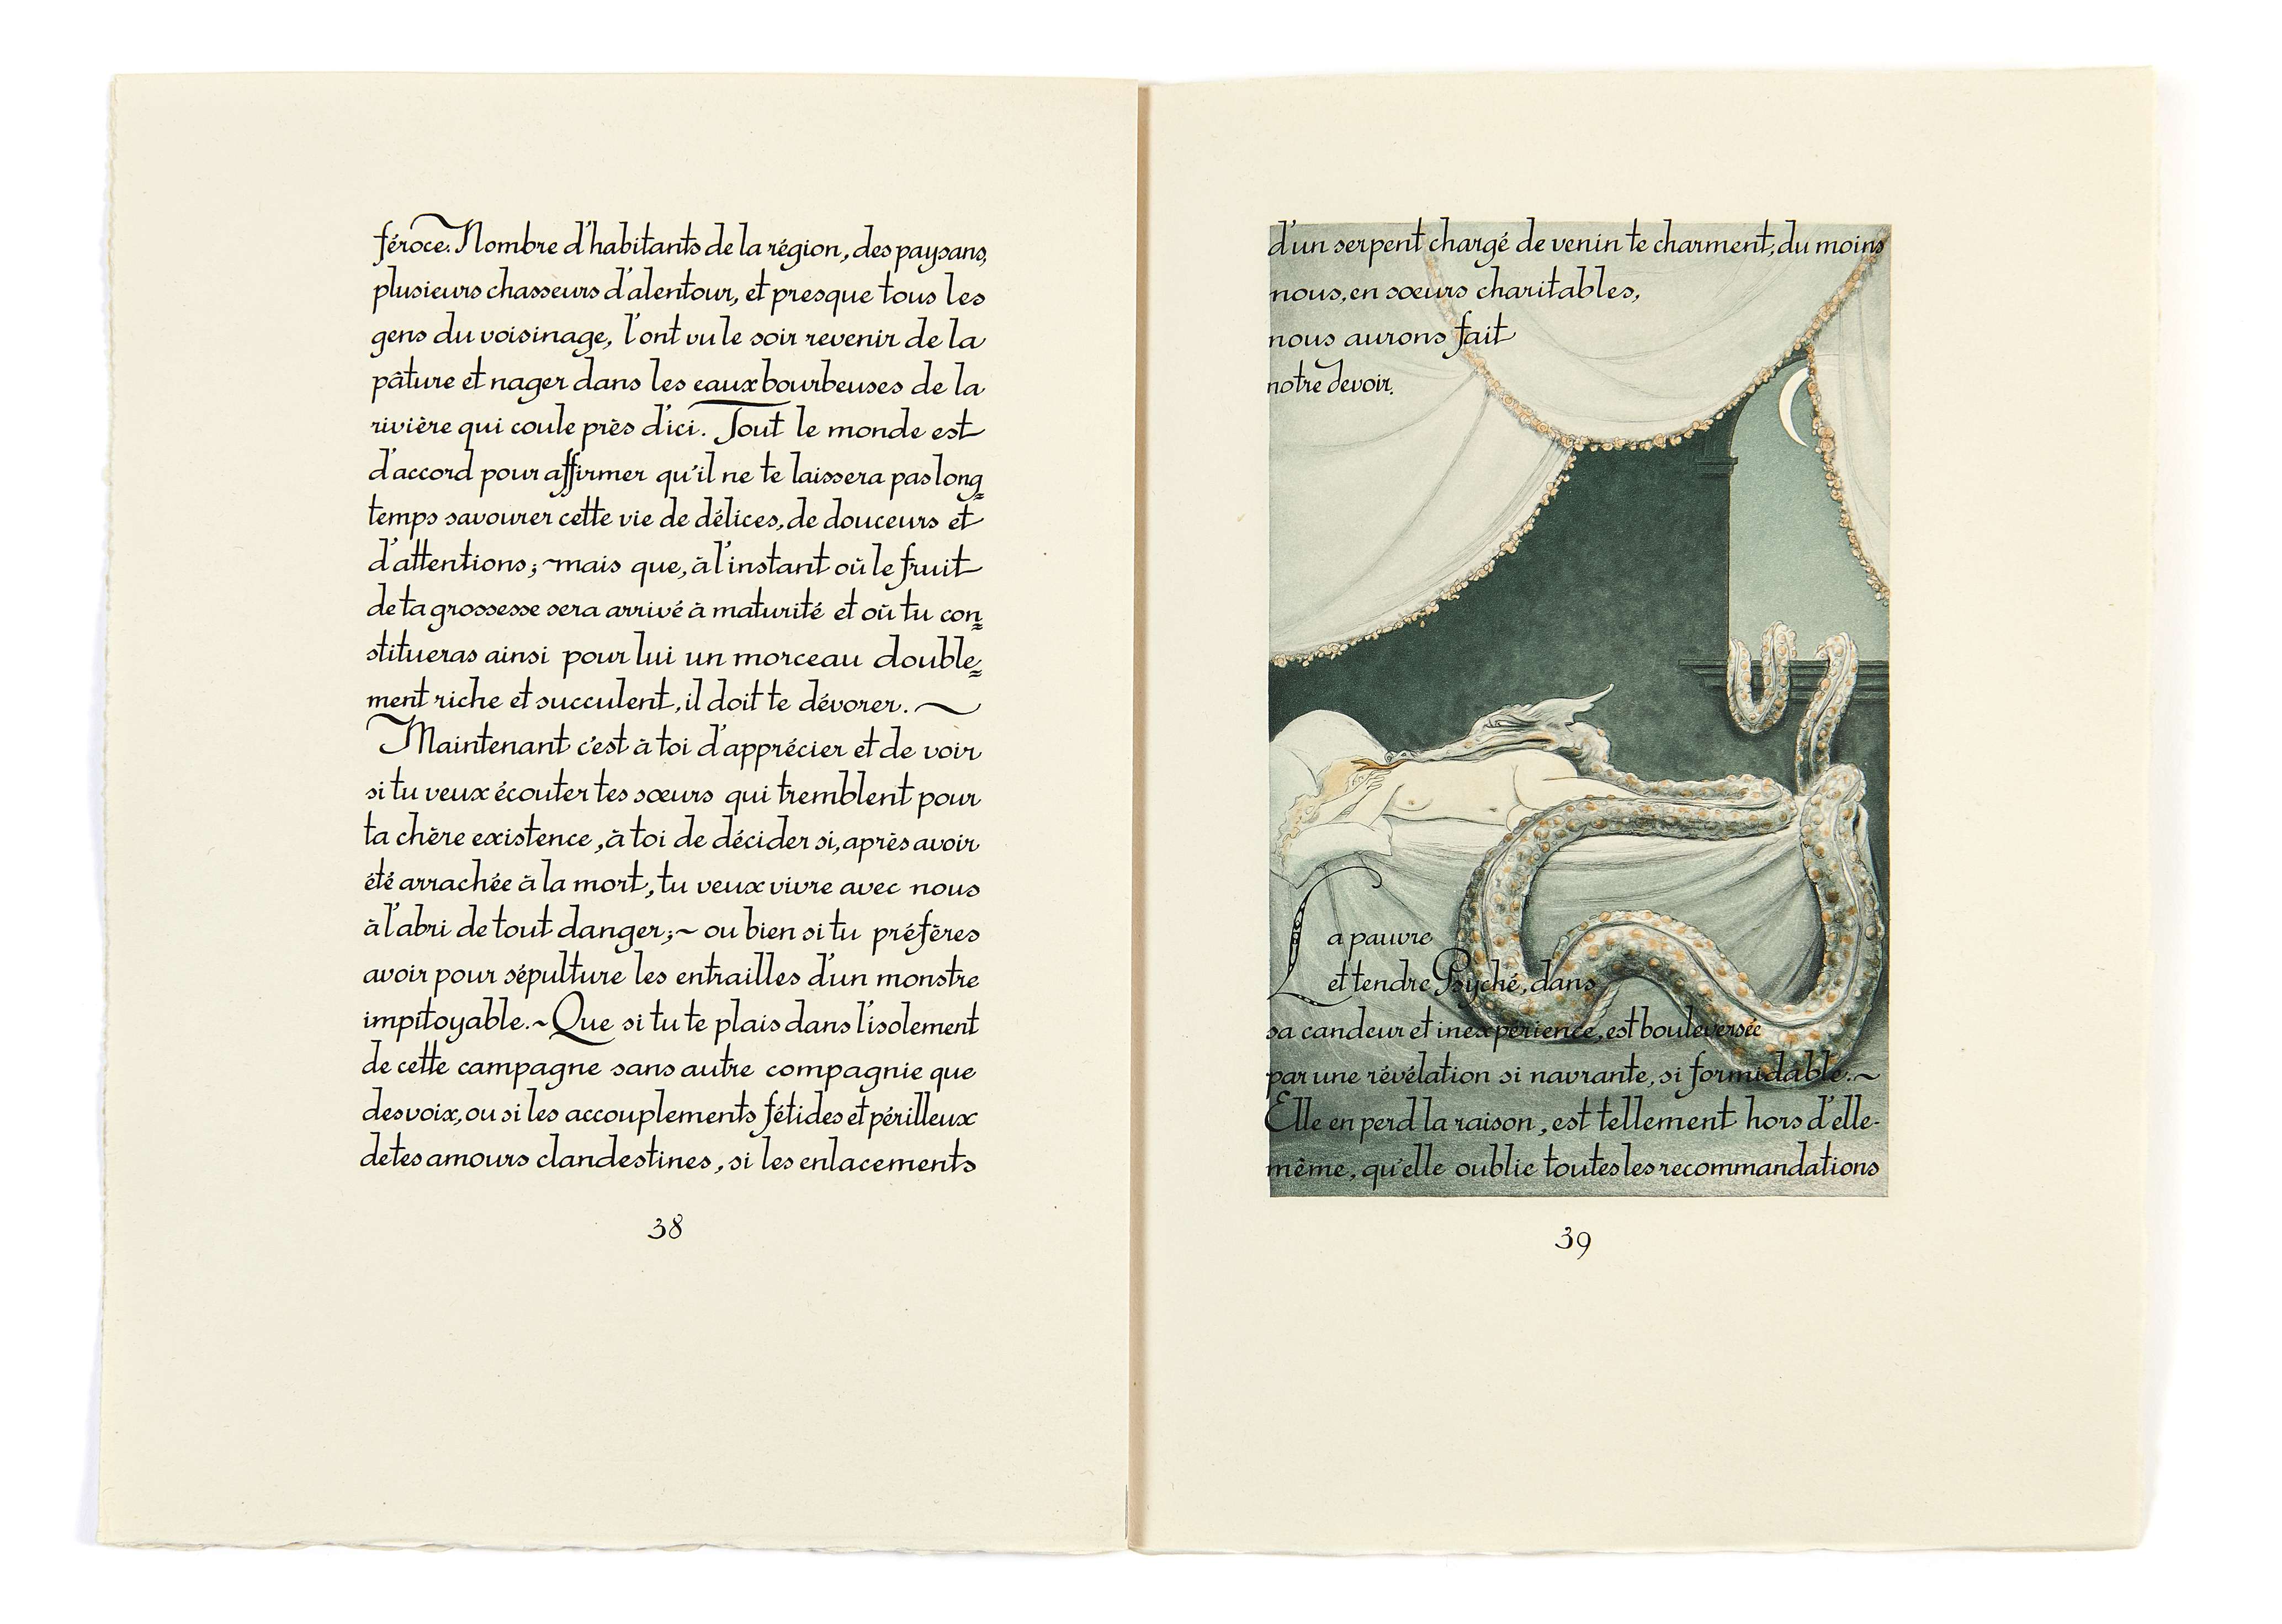 féroce. Nombre d'habitants de la région, des paysans,
plusieurs chasseurs d'alentour, et presque tous les
gens du voisinage, l'ont vu le soir revenir de la
pâture et nager dans les eaux bourbeuses de la
rivière qui coule près d'ici. Tout le monde est
d'accord pour affirmer qu'il ne te laissera pas long=
temps savourer cette vie de délices, de douceurs et
d'attentions; ~ mais que, à l'instant où le fruit
de ta grossesse sera arrivé à maturité et où tu con=
stitueras ainsi pour lui un morceau double=
ment riche et succulent, il doit te dévorer. ~
Maintenant c'est à toi d'apprécier et de voir
si tu veux écouter tes sœurs qui tremblent pour
ta chère existence, à toi de décider si, après avoir
été arrachée à la mort, tu veux vivre avec nous
à l'abri de tout danger; ~ ou bien si tu préfères
avoir pour sépulture les entrailles d'un monstre
impitoyable. ~ Que si tu te plais dans l'isolement
de cette campagne sans autre compagnie que
des voix, ou si les accouplements fétides et périlleux
de tes amours clandestines, si les enlacements
38
d'un serpent chargé de venin te charment, du moins
nous, en sœurs charitables,
nous aurons fait
notre devoir.
La pauvre
et tendre Psyché, dans
sa candeur et inexpérience, est bouleversée
par une révélation si navrante, si formidable. ~
Elle en perd la raison, est tellement hors d'elle-
même, qu'elle oublie toutes les recommandations
39